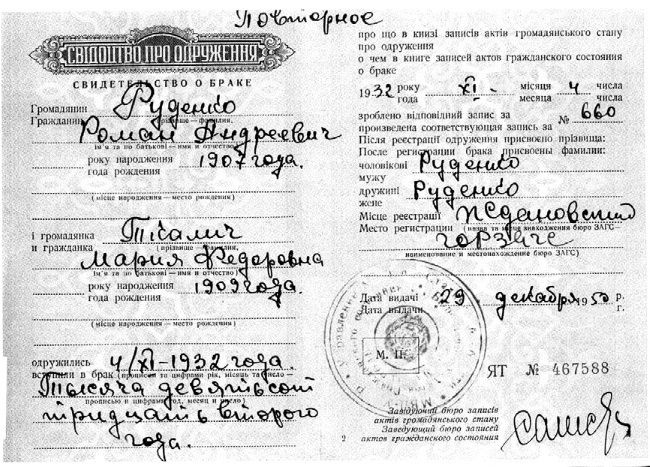 Повторное
СВІДОЦТВО ПРО ОДРУЖЕННЯ
СВИДЕТЕЛЬСТВО О БРАКЕ
Громадянин Руденко
Гражданин (прізвище — фамилия,
Роман Андреевич
ім'я та по батькові — имя и отчество)
року народження
года рождения 1907 года.
(місце народження — место рождения)
і громадянка
и гражданка
(прізвище — фамилия,
Мария Федоровна
ім'я та по батькові — имя и отчество)
року народження
года рождения 1909 года.
(місце народження — место рождения)
одружились 4/XI-1932 года.
вступили в брак (прописом та цифрами рік, місяць та число —
Тысяча девятьсот
прописью и цифрами год, месяц и число)
тридцать второго
года.
про що в книзі записів актів громадянського стану
про одруження
о чем в книге записей актов гражданского состояния
о браке
1932 року XI місяця 4 числа
года месяца числа
зроблено відповідний запис за
произведена соответствующая запись за № 660
Після реєстрації одруження присвоєно прізвища:
После регистрации брака присвоены фамилии:
чоловікові Руденко
мужу
дружині Руденко
жене
Місце реєстрації Ждановский
Место регистрации (назва та місце знаходження бюро ЗАГС —
горЗагс
наименование и местонахождение бюро ЗАГС)
Дата видачі
Дата выдачи 29 декабря 1950 р.
г.
М. П.
ЯТ № 467588
Завідуючий бюро записів
актів громадянського стану
Заведующий бюро записей
актов гражданского состояния
2